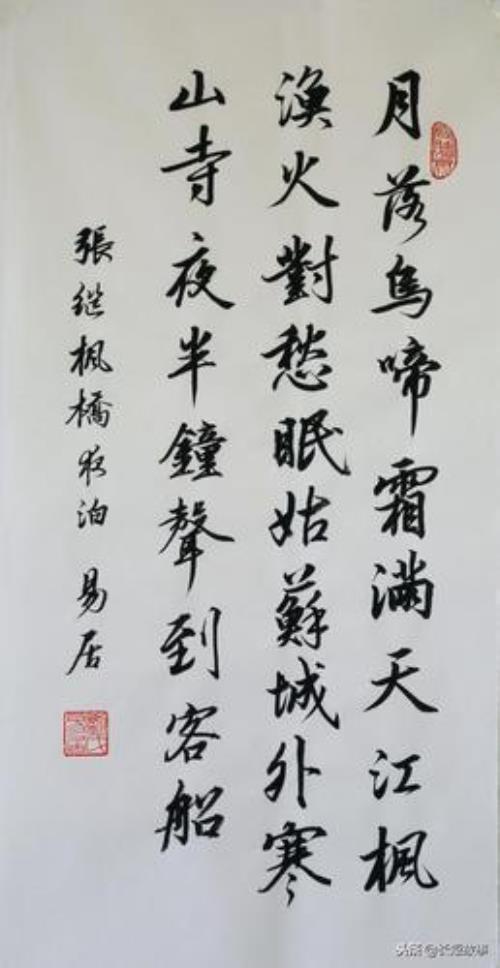 月落烏啼霜滿天江楓
漁火對愁眠姑蘇城外寒
山寺夜半鐘聲到客船
張继楓橋夜泊 易居
头条@长煌故事